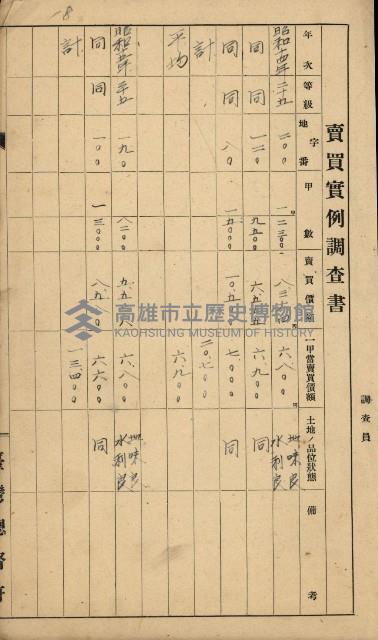 賣買實例調查書
調査員
年次
等級
地番
字
甲數
賣買價額
一甲當賣買價額
土地ノ品位狀態
備考
二五
二〇〇
一二三〇〇
六八〇〇
地味良
水利良
同
同
六九〇〇
同
同
同
八〇
一五〇〇〇
七〇〇〇
同
計
二〇七〇〇
平均
六九〇〇
一九〇
八二〇〇
六八〇〇
地味良
水利良
同
同
一〇〇
一三〇〇〇
六六〇〇
同
計
一三四〇〇
18
高雄市立歷史博物館
KAOHSIUNG MUSEUM OF HISTORY
臺灣總督府